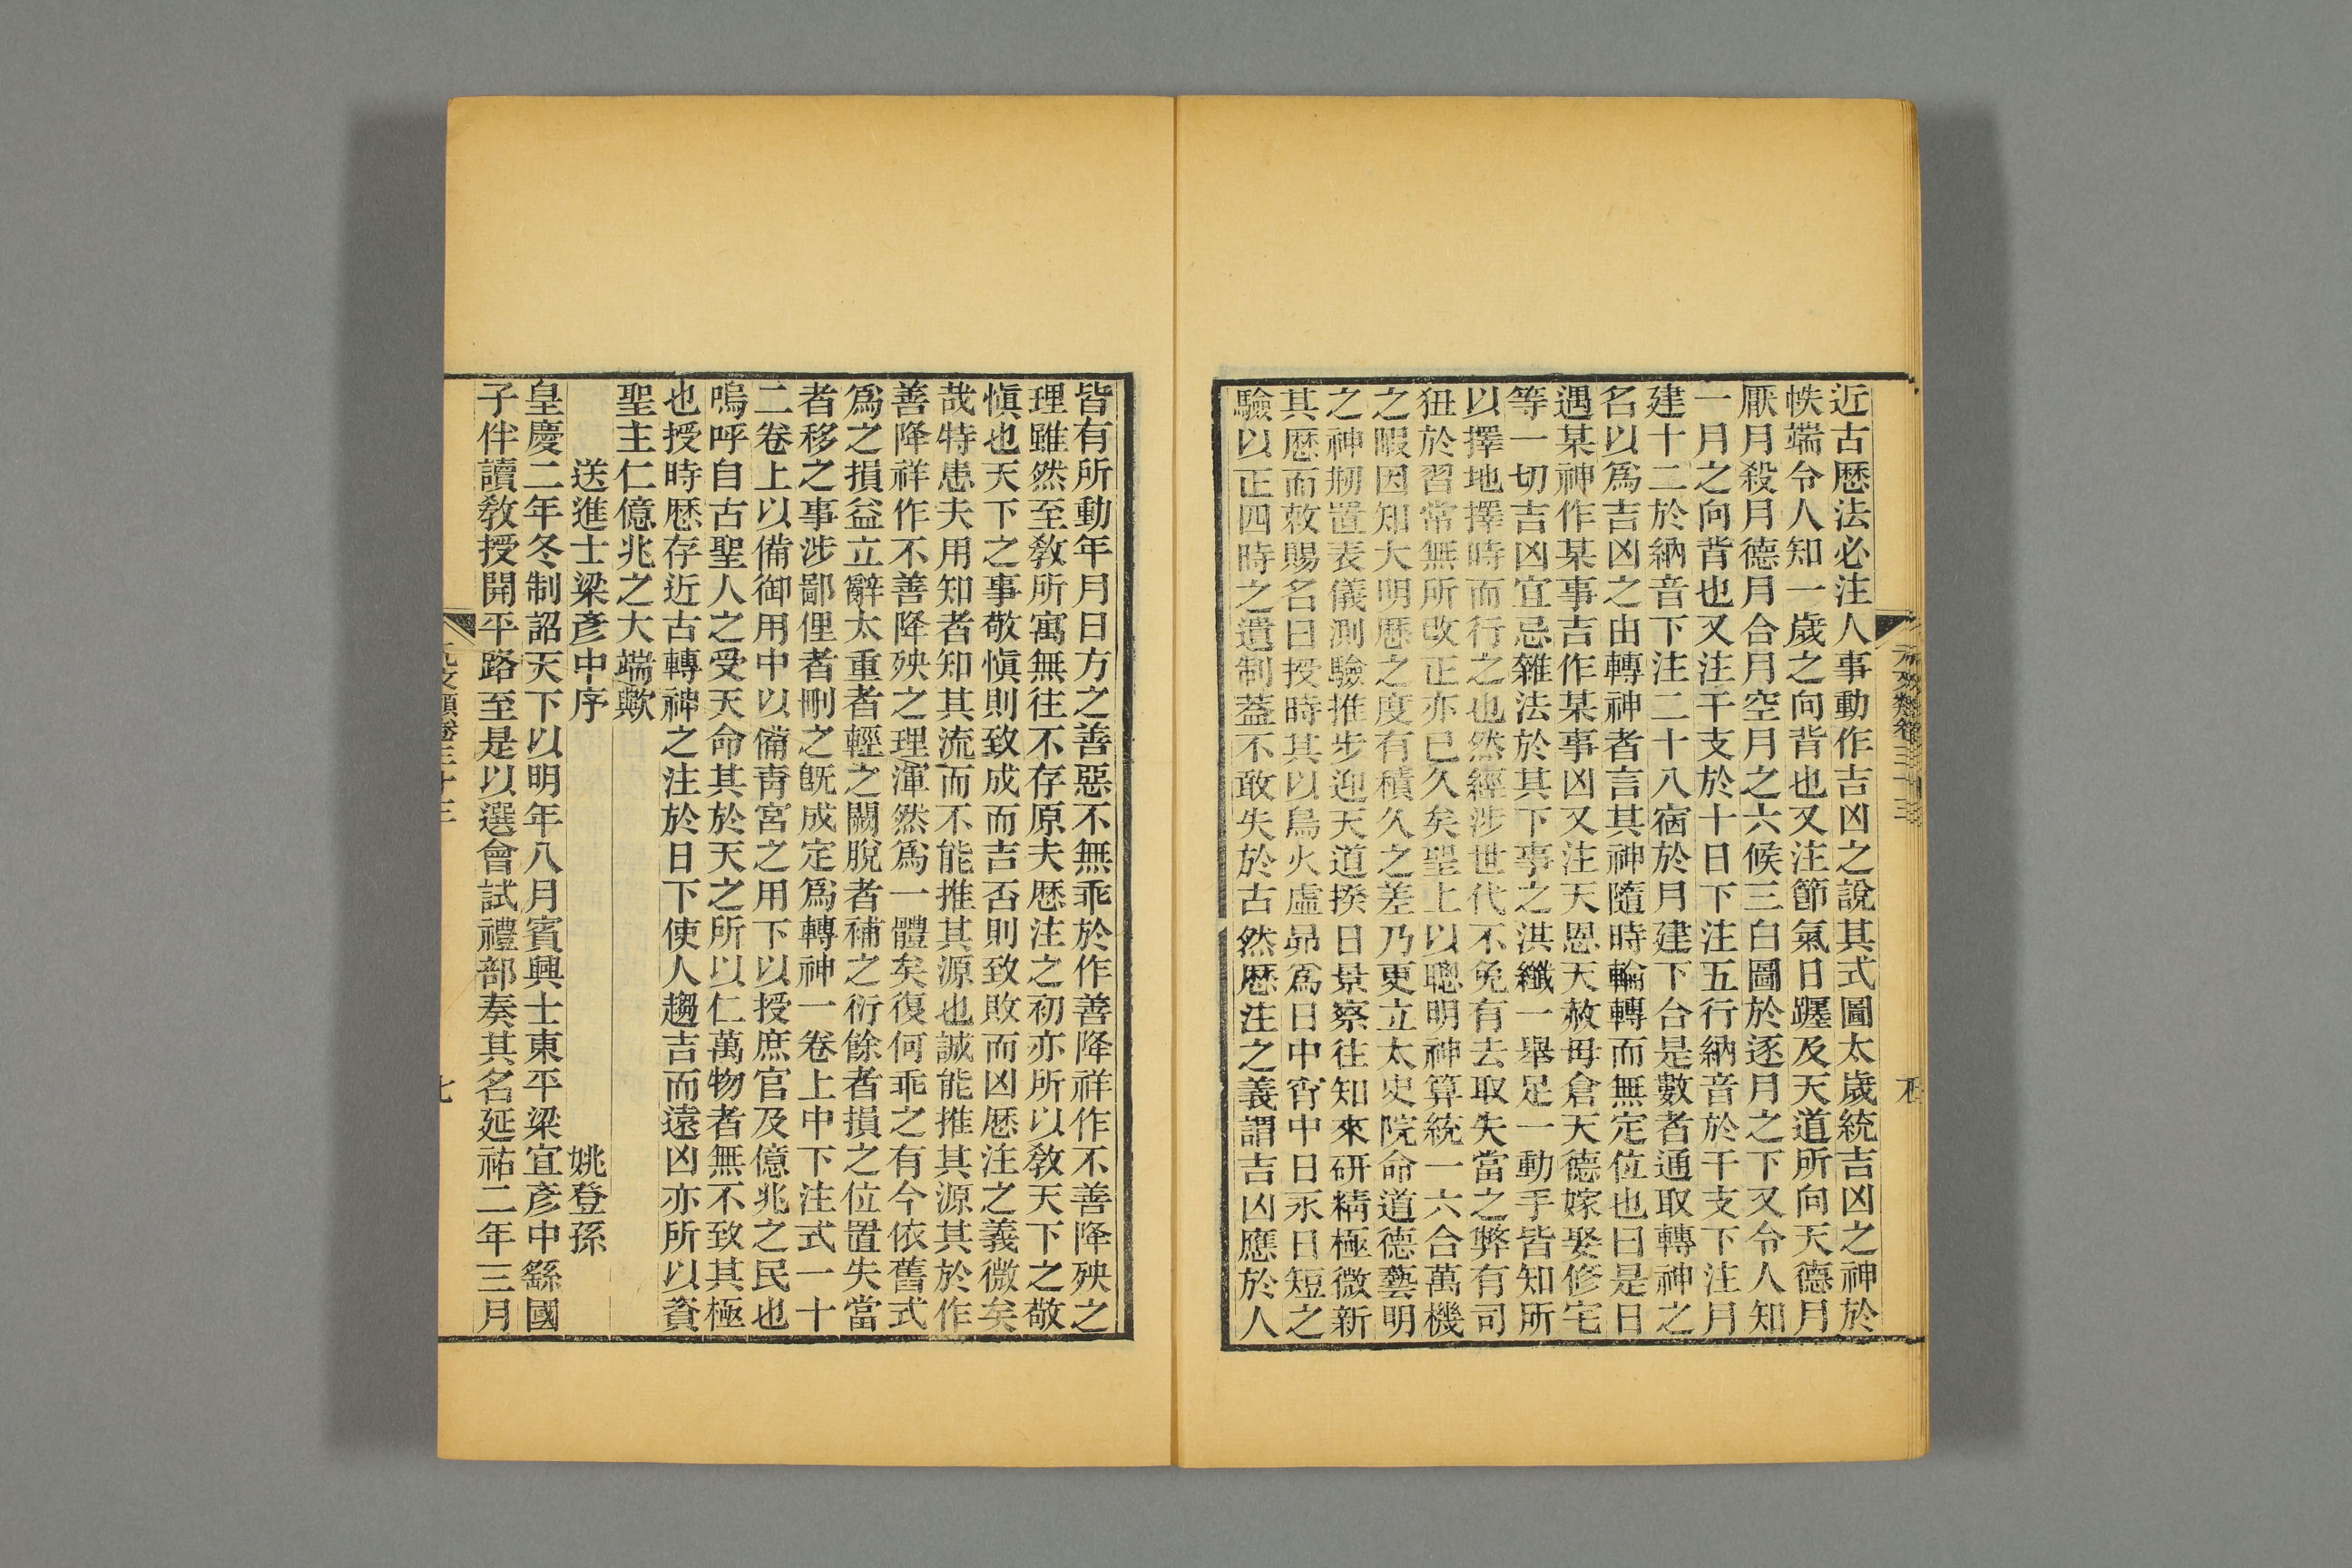 近古厯法必注人事動作吉凶之說其式圖太歲統吉凶之神於
帙端令人知一歲之向背也又注節氣日躔及天道所向天德月
厭月殺月德月合月空月之六候三白圖於逐月之下又令人知
一月之向背也又注干支於十日下注五行納音於干支下注月
建十二於納音下注二十八宿於月建下合是數者通取轉神之
名以爲吉凶之由轉神者言其神隨時輪轉而無定位也曰是日
遇某神作某事吉作某事凶又注天恩天赦母倉天德嫁娶修宅
等一切吉凶宜忌雜法於其下事之洪纖一舉足一動手皆知所
以擇地擇時而行之也然經涉世代不免有去取失當之弊有司
狃於習常無所改正亦已久矣聖上以聰明神算統一六合萬機
之暇因知大明厯之度有積久之差乃更立太史院命道德藝明
之神剏置表儀測驗推步迎天道揆日景察往知來研精極微新
其厯而敕賜名曰授時其以鳥火虛昴爲日中宵中日永日短之
驗以正四時之遺制蓋不敢失於古然厯注之義謂吉凶應於人
皆有所動年月日方之善惡不無乖於作善降祥作不善降殃之
理雖然至敎所寓無往不存原夫厯注之初亦所以敎天下之敬
愼也天下之事敬愼則致成而吉否則致敗而凶厯注之義微矣
哉特患夫用知者知其流而不能推其源也誠能推其源其於作
善降祥作不善降殃之理渾然爲一體矣復何乖之有今依舊式
爲之損益立辭太重者輕之闕脫者補之衍餘者損之位置失當
者移之事涉鄙俚者刪之旣成定爲轉神一卷上中下注式一十
二卷上以備御用中以備靑宮之用下以授庶官及億兆之民也
嗚呼自古聖人之受天命其於天之所以仁萬物者無不致其極
也授時厯存近古轉神之注於日下使人趨吉而遠凶亦所以資
聖主仁億兆之大端歟
送進士梁彥中序　姚登孫
皇慶二年冬制詔天下以明年八月賓興士東平梁宜彥中繇國
子伴讀敎授開平路至是以選會試禮部奏其名延祐二年三月